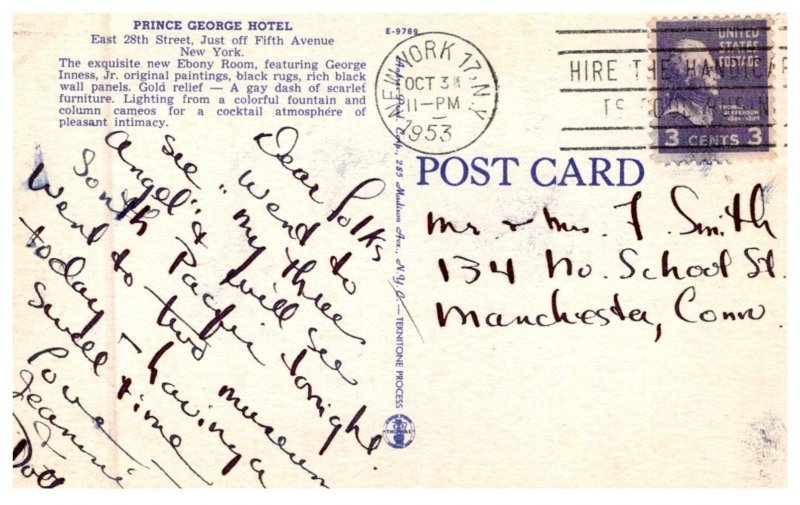 PRINCE GEORGE HOTEL
East 28th Street, Just off Fifth Avenue
New York.
The exquisite new Ebony Room, featuring George
Inness, Jr. original paintings, black rugs, rich black
wall panels. Gold relief — A gay dash of scarlet
furniture. Lighting from a colorful fountain and
column cameos for a cocktail atmosphére of
pleasant intimacy.
Dear Folks
Went to
see "My three
Angels" & will see
South Pacific tonight.
Went to two museum
today - having a
swell time
Love
Jeannie
&
E-9789
285 Madison Ave., N.Y.C. — TEKNITONE PROCESS
NEW YORK 17, N.Y.
OCT 3
11-PM
1953
HIRE THE HANDICAP
UNITED
STATES
POSTAGE
3 CENTS 3
POST CARD
Mr & Mrs F. Smith
134 No. School St.
Manchester, Conn